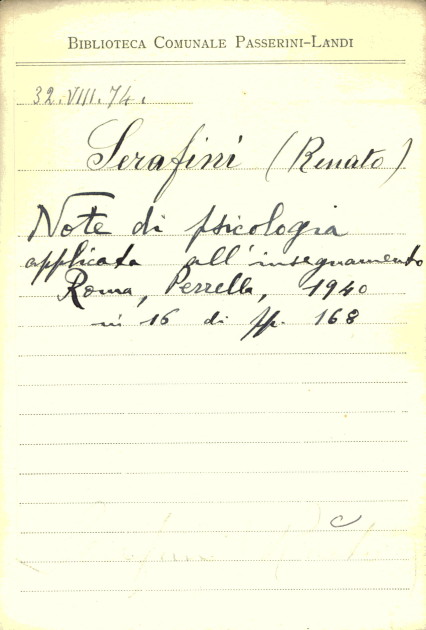 BIBLIOTECA COMUNALE PASSERINI-LANDI
32.VIII.74.
Serafini (Renato)
Note di psicologia
applicata all'insegnamento
Roma, Perrella, 1940
in 16 di pp. 168
C